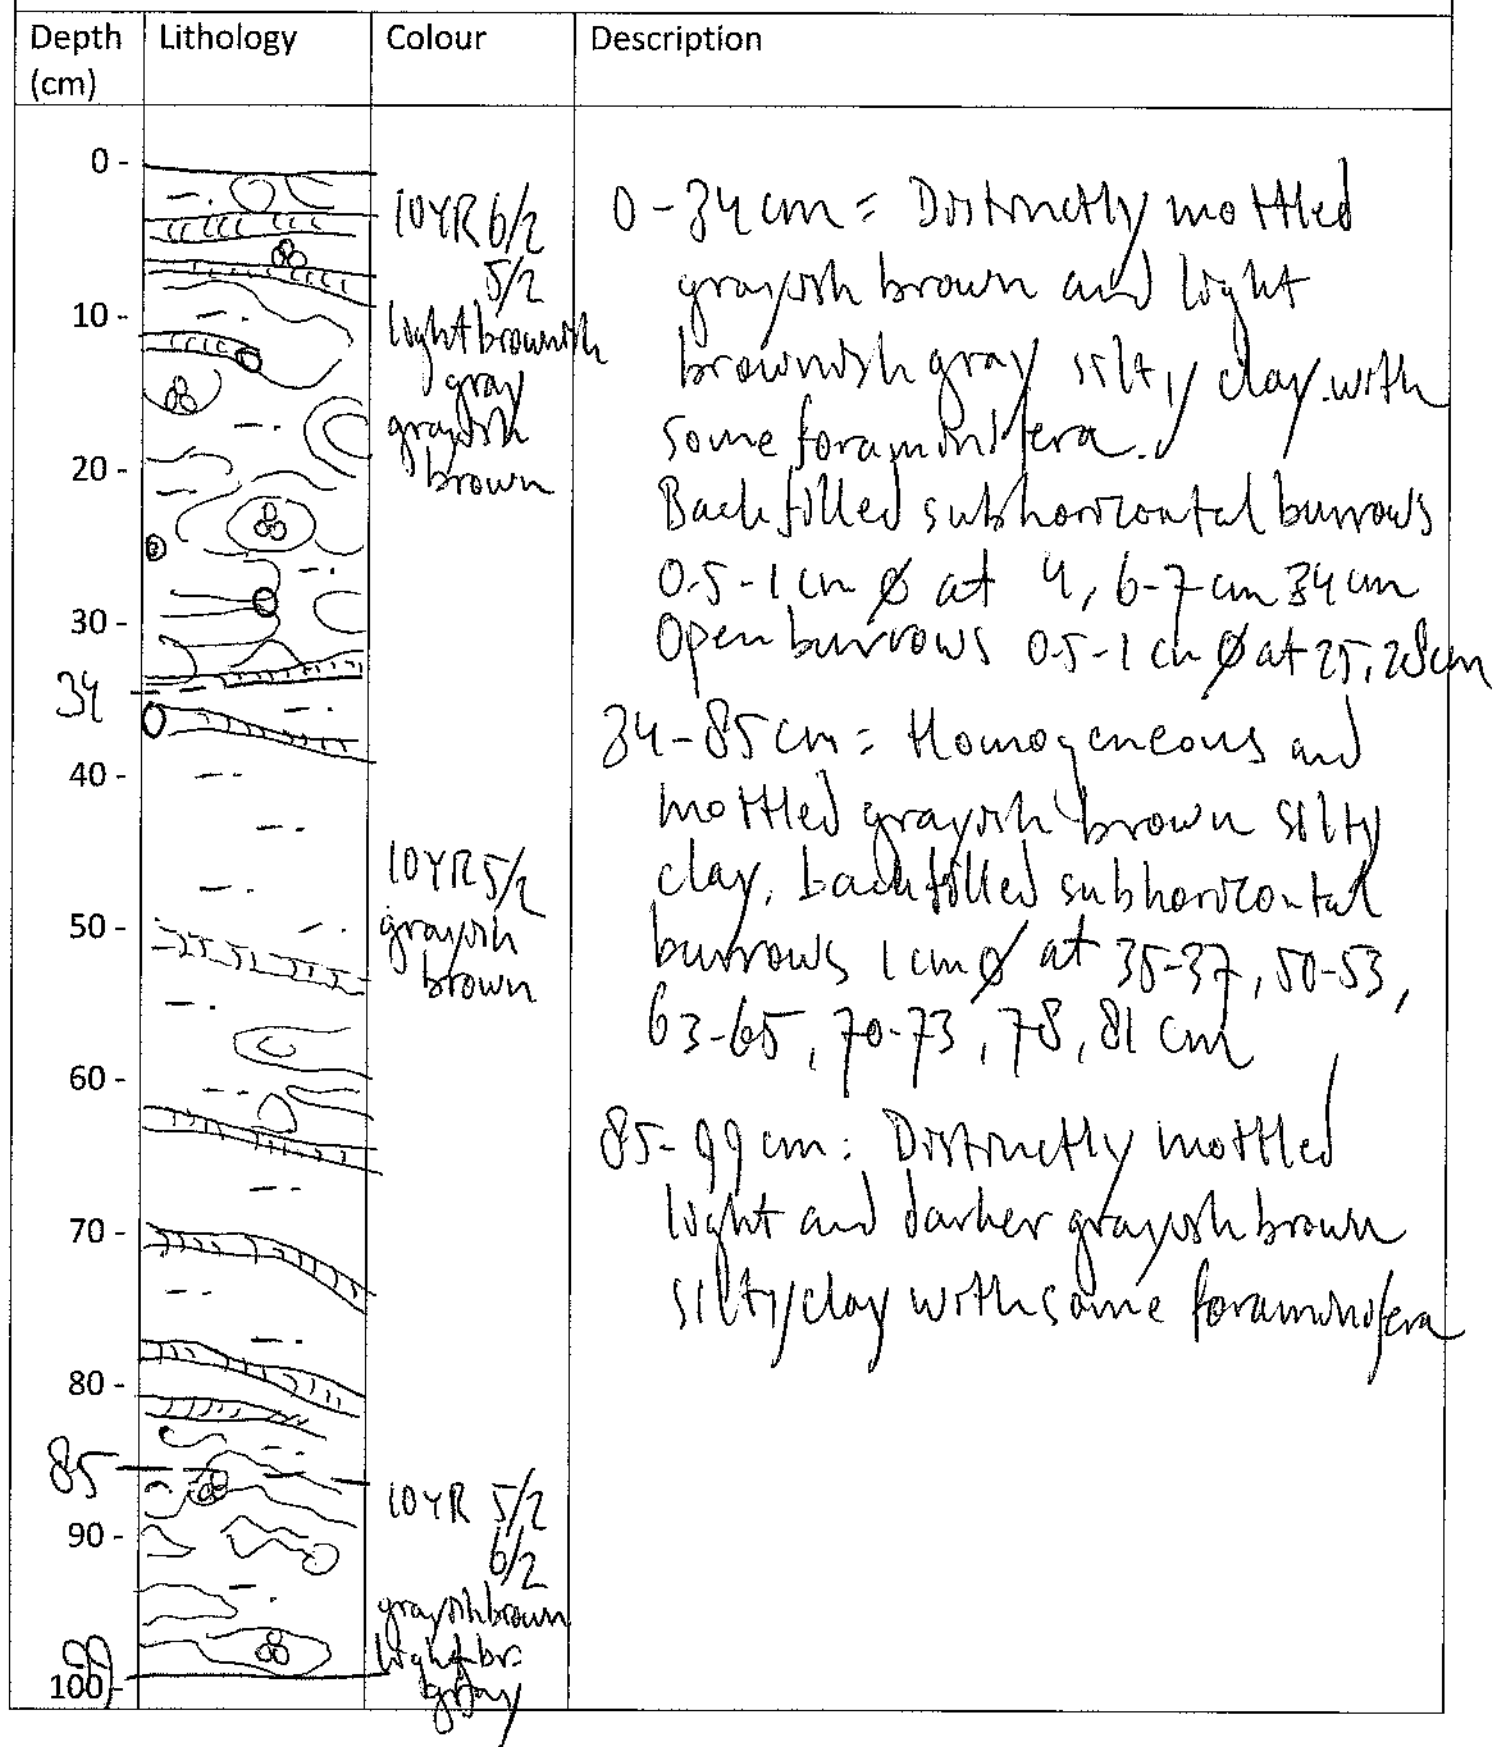 Depth Lithology Colour Description
(cm)
0 -
10 -
20 -
30 -
34
40 -
50 -
60 -
70 -
80 -
85
90 -
99
100 -
10YR 6/2
5/2
light brownish
gray
grayish
brown
10YR 5/2
grayish
brown
10YR 5/2
6/2
grayish brown
light br.
gray
0 - 34 cm = Distinctly mottled
grayish brown and light
brownish gray silty clay with
some foraminifera.
Backfilled subhorizontal burrows
0.5-1 cm ø at 4, 6-7 cm 34 cm
Open burrows 0.5-1 cm ø at 25, 28cm
34-85 cm = Homogeneous and
mottled grayish brown silty
clay, backfilled subhorizontal
burrows 1 cm ø at 35-37, 50-53,
63-65, 70-73, 78, 81 cm
85-99 cm: Distinctly mottled
light and darker grayish brown
silty clay with some foraminifera